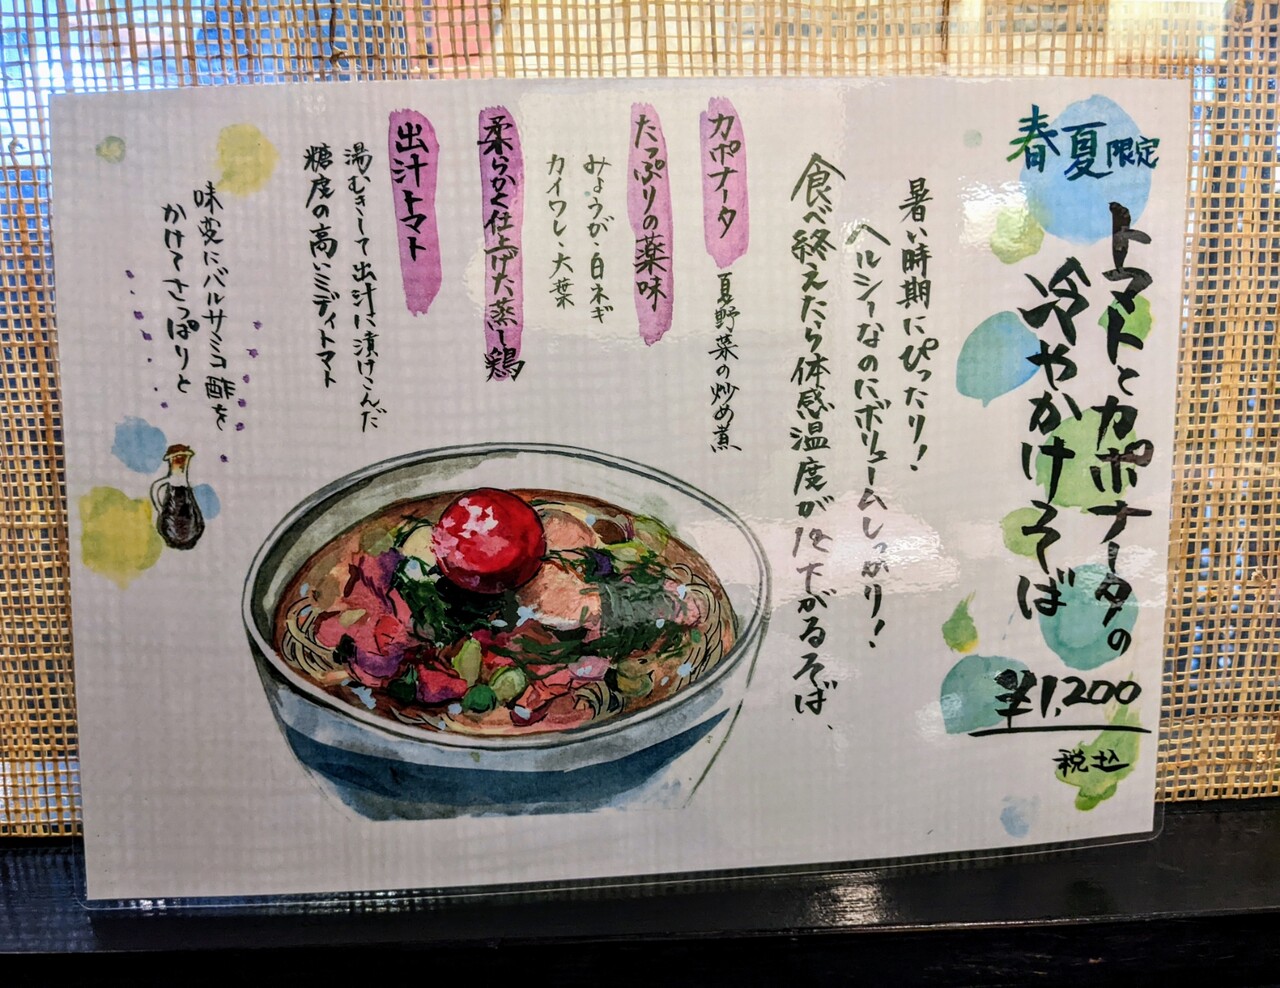 春夏限定
トマトとカポナータの
冷やかけそば
¥1,200
税込
暑い時期にぴったり!
ヘルシーなのにボリュームしっかり!
食べ終えたら体感温度が1℃下がるそば、
カポナータ 夏野菜の炒め煮
たっぷりの薬味
みょうが・白ネギ
カイワレ・大葉
柔らかく仕上げた蒸し鶏
出汁トマト
湯むきして出汁に漬けこんだ
糖度の高いミディトマト
味変にバルサミコ酢を
かけてさっぱりと